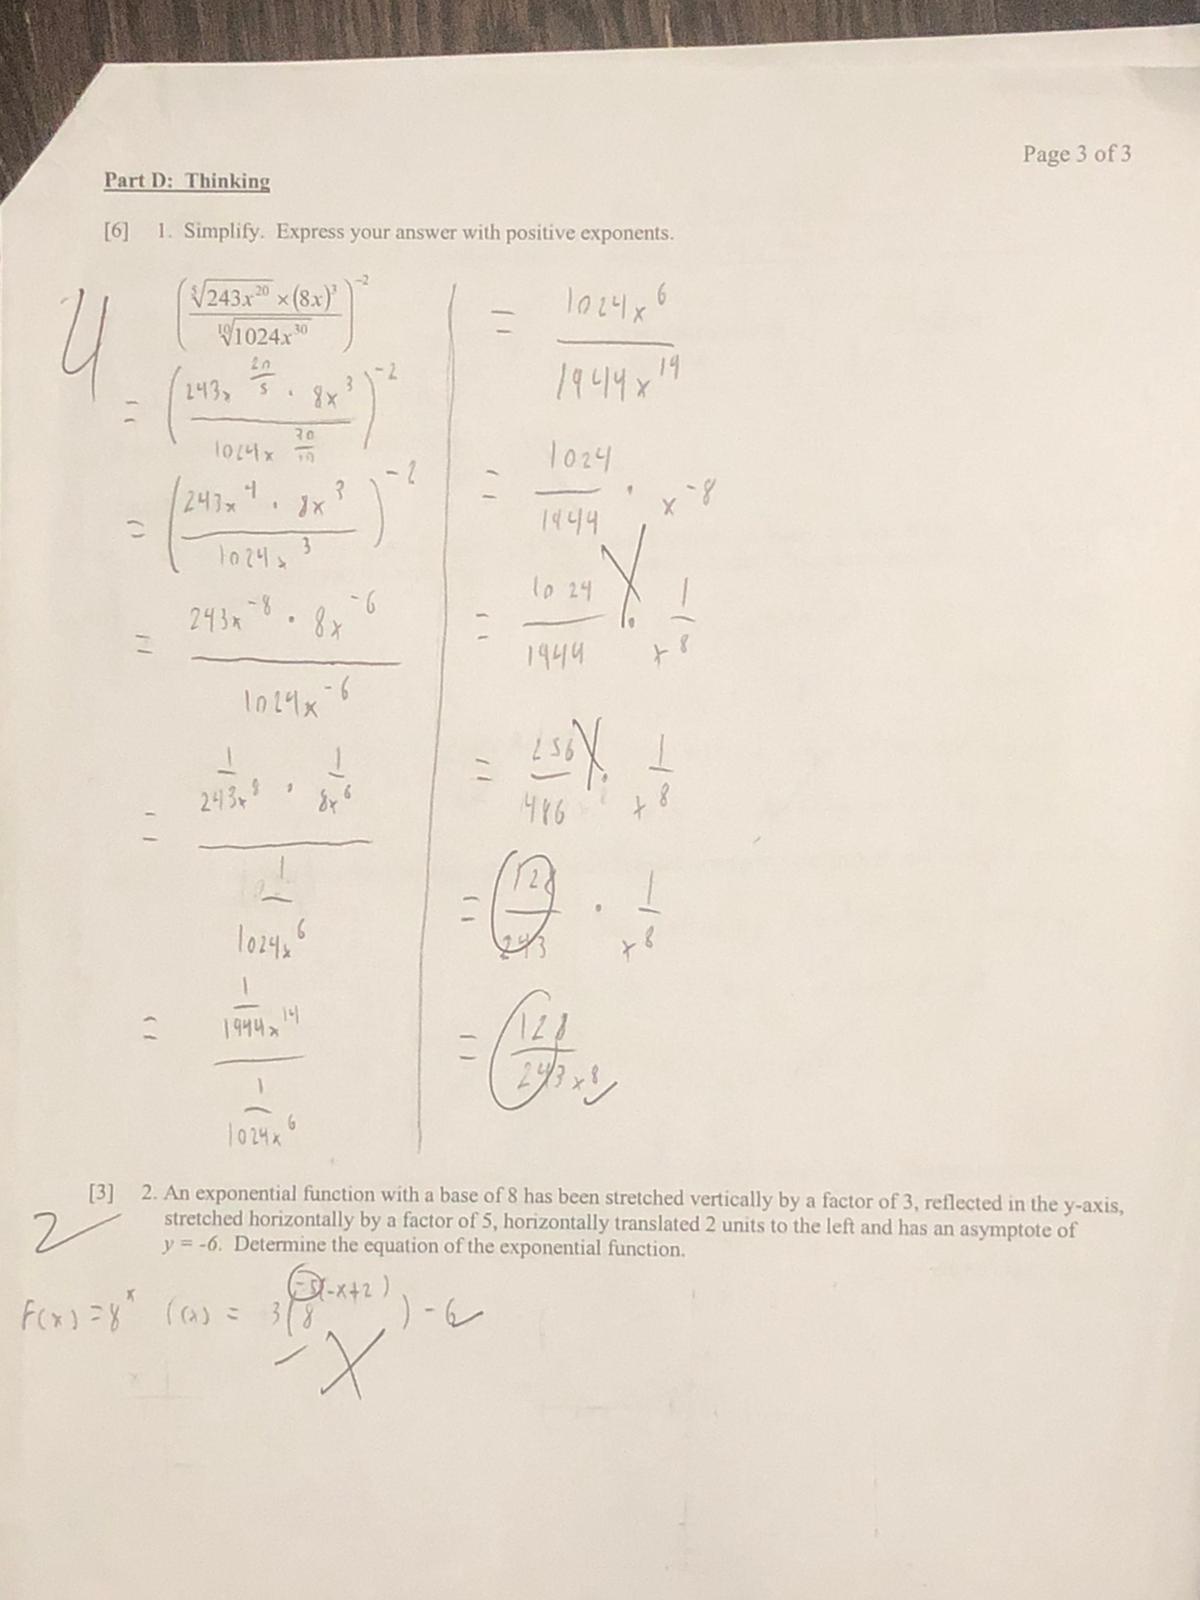 Page 3 of 3
Part D: Thinking
[6] 1. Simplify. Express your answer with positive exponents.
4
(⁵√243x²⁰ × (8x)³ / ¹⁰√1024x³⁰)⁻²
= (243x^(20/5) · 8x³ / 1024x^(30/10))⁻²
= (243x⁴ · 8x³ / 1024x³)⁻²
= 243x⁻⁸ · 8x⁻⁶ / 1024x⁻⁶
= (1/243x⁸ · 1/8x⁶) / (1/1024x⁶)
= (1/1944x¹⁴) / (1/1024x⁶)
= 1024x⁶ / 1944x¹⁴
= 1024/1944 · x⁻⁸
= 1024/1944 · 1/x⁸
= 256/486 · 1/x⁸
= 128/243 · 1/x⁸
= 128/243x⁸
[3] 2. An exponential function with a base of 8 has been stretched vertically by a factor of 3, reflected in the y-axis,
stretched horizontally by a factor of 5, horizontally translated 2 units to the left and has an asymptote of
y = -6. Determine the equation of the exponential function.
2
F(x) = 8ˣ f(x) = 3(8^(-5(-x+2))) - 6